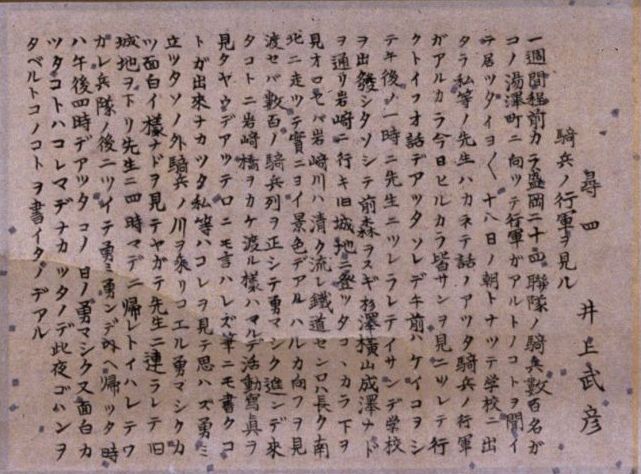 騎兵ノ行軍ヲ見ル
尋四　井上武彦
一週間程前カラ盛岡二十四聯隊ノ騎兵数百名ガ
コノ湯澤町ニ向ツテ行軍ガアルトノコトヲ聞イ
テ居ツタイヨ〱十八日ノ朝トナツテ学校ニ出
タラ私等ノ先生ハカネテ話ノアツタ騎兵ノ行軍
ガアルカラ今日ヒルカラ皆サンヲ見ニツレテ行
クトイフオ話デアツタソレデ午前ハケイコヲシ
テ午後ノ一時ニ先生ニツレラレテイサンデ学校
ヲ出發シタソシテ前森ヲスギ杉澤横山成澤ナド
ヲ通リ岩崎ニ行キ旧城地ニ登ツタコヽカラ下ヲ
見オロセバ岩崎川ハ清ク流レ鐵道センロハ長ク南
北ニ走ツテ實ニヨイ景色デアルハルカ向フヲ見
渡セバ数百ノ騎兵列ヲ正シテ勇マシク進ンデ來
タコトニ岩崎橋ヲカケ渡ル様ハマルデ活動寫真ヲ
見タヤウデアツテロニモ言ハレズ筆ニモ書クコ
トガ出來ナカツタ私等ハコレヲ見テ思ハズ勇ミ
立ツタソノ外騎兵ノ川ヲ乘リコエル勇マシクカ
ツ面白イ様ナドヲ見テヤガテ先生ニ連ラレテ旧
城地ヲ下リ先生ニ四時マデニ帰レトイハレテワ
ガレ兵隊ノ後ニツイテ勇ミ勇ンデ内ヘ帰ツタ時
ハ午後四時デアツタコノ日ノ勇マシク又面白カ
ツタコトハコレマデナカツタノデ此夜ゴハンヲ
タベルトコノコトヲ書イタノデアル